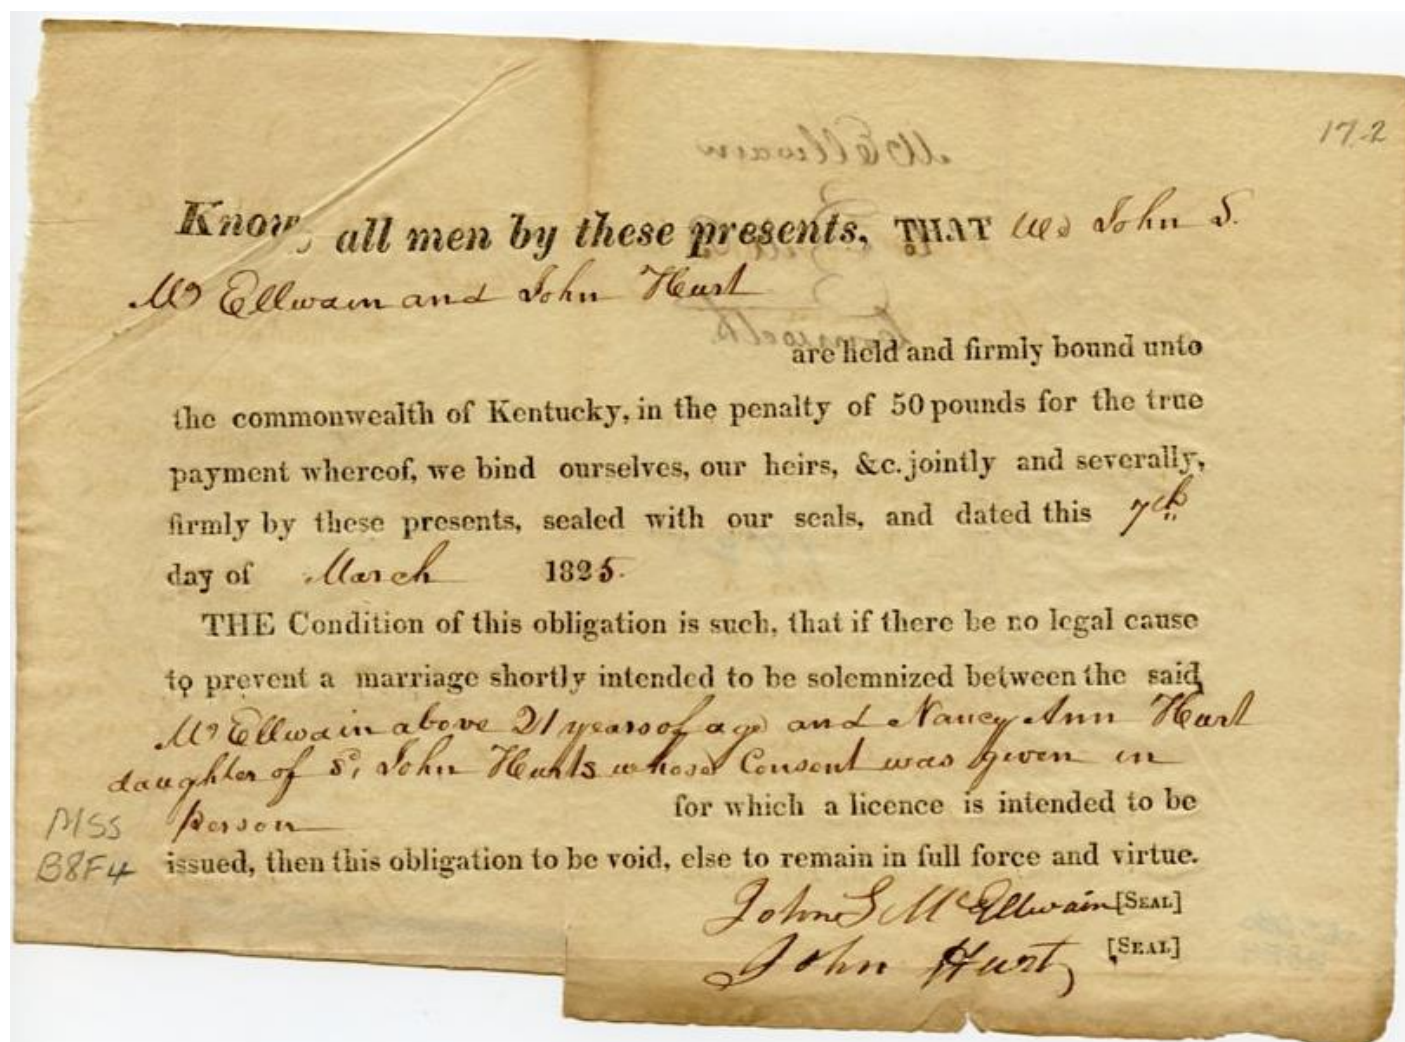 17-2
Know all men by these presents, THAT We John S.
Mc Ellwain and John Hurt
are held and firmly bound unto
the commonwealth of Kentucky, in the penalty of 50 pounds for the true
payment whereof, we bind ourselves, our heirs, &c. jointly and severally,
firmly by these presents, sealed with our seals, and dated this 7th
day of March 1825.
THE Condition of this obligation is such, that if there be no legal cause
to prevent a marriage shortly intended to be solemnized between the said
Mc Ellwain above 21 years of age and Nancy Ann Hurt
daughter of sd. John Hurts whose Consent was given in
person for which a licence is intended to be
MSS
B8F4
issued, then this obligation to be void, else to remain in full force and virtue.
John S McEllwain [SEAL]
John Hurt [SEAL]